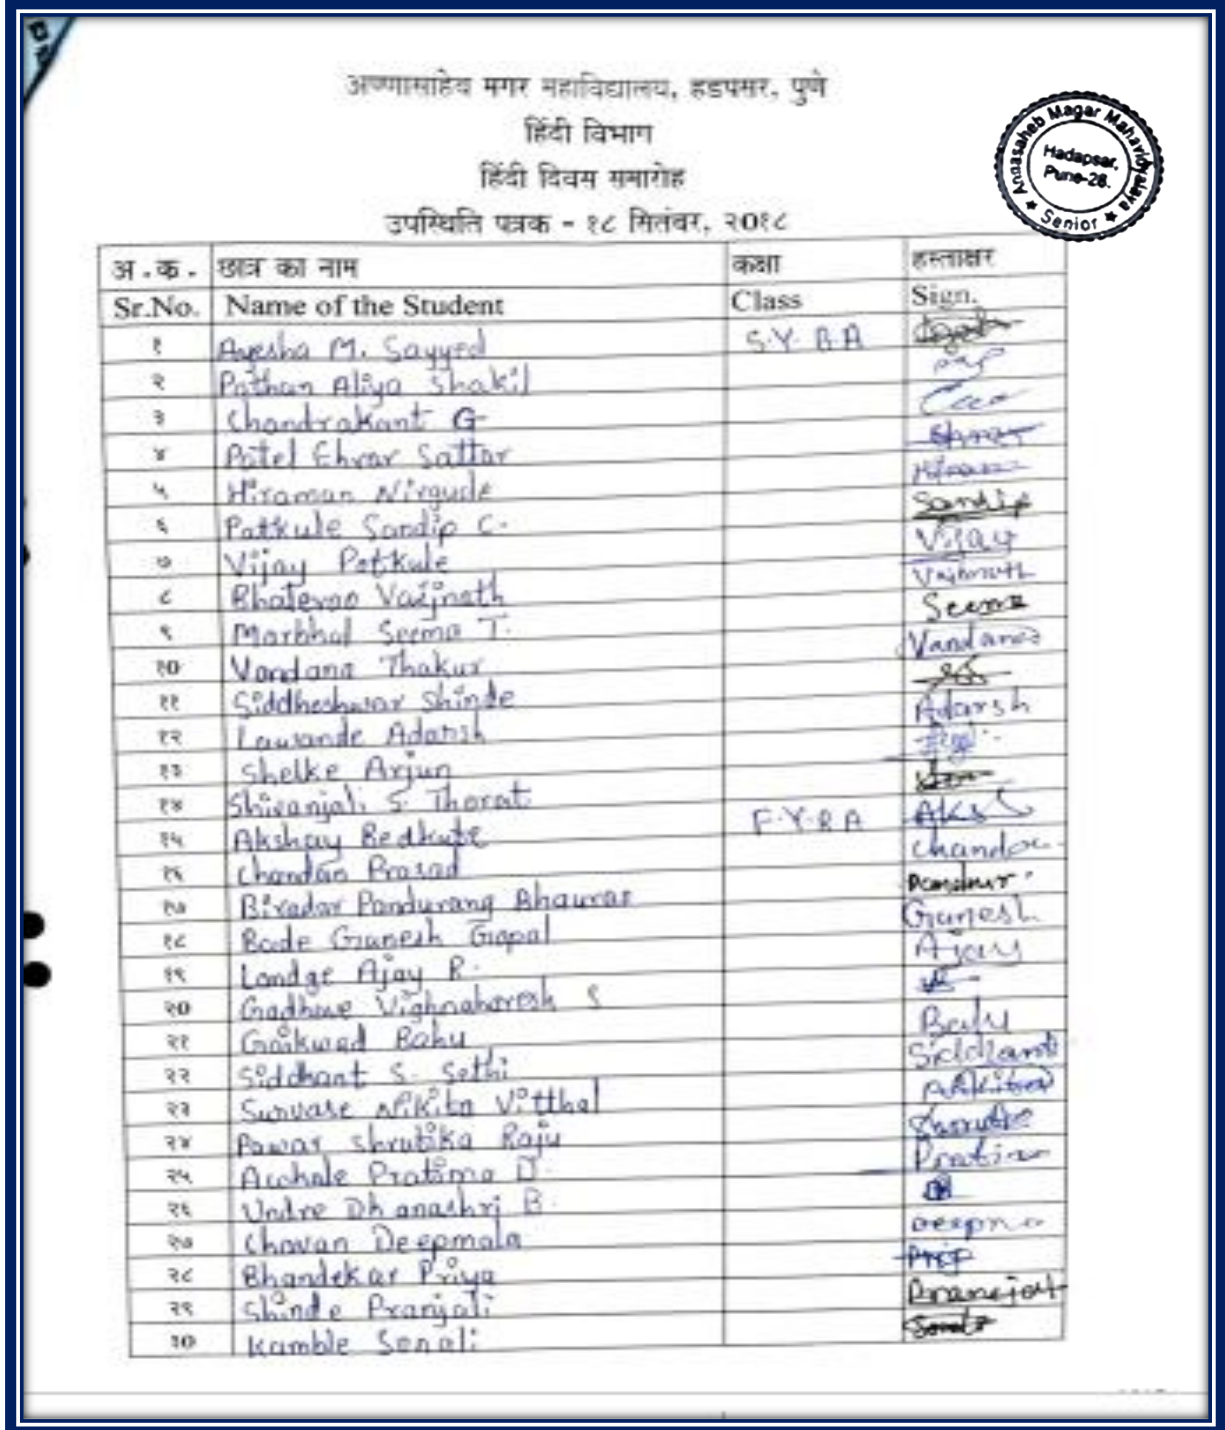 अण्णासाहेब मगर महाविद्यालय, हडपसर, पुणे
हिंदी विभाग
हिंदी दिवस समारोह
उपस्थिति पत्रक - १८ सितंबर, २०१८
Annasaheb Magar Mahavidyalaya
Hadapsar,
Pune-28.
★ Senior ★
अ.क. छात्र का नाम कक्षा हस्ताक्षर
Sr.No. Name of the Student Class Sign.
१ Ayesha M. Sayyed S.Y.B.A
२ Pathan Aliya Shakil
३ Chandrakant G
४ Patel Sattar
५ Hiraman Nirgude
६ Patkule Sandip C. Sandip
७ Vijay Patkule Vijay
८ Vaijnath Vaijnath
९ Marbhal Seema T. Seema
१० Vandana Thakur Vandana
११ Siddheshwar Shinde
१२ Lawande Adarsh Adarsh
१३ Shelke Arjun
१४ Shivanjali S. Thorat
१५ Akshay Bedkute F.Y.B.A Aks
१६ Chandan Prasad
१७ Biradar Pandurang
१८ Bade Ganesh Gopal Ganesh
१९ Londge Ajay R. Ajay
२० Gadhave Vighnaharesh S
२१ Gaikwad Balu Balu
२२ Siddhant S. Sethi Siddhant
२३ Survase Nikita Vitthal Nikita
२४ Pawar Shrutika Raju
२५ Pratima D.
२६ Undre Dhanashri B.
२७ Chavan Deepmala
२८ Bhandekar Priya
२९ Shinde Pranjali
३० Kamble Sonali